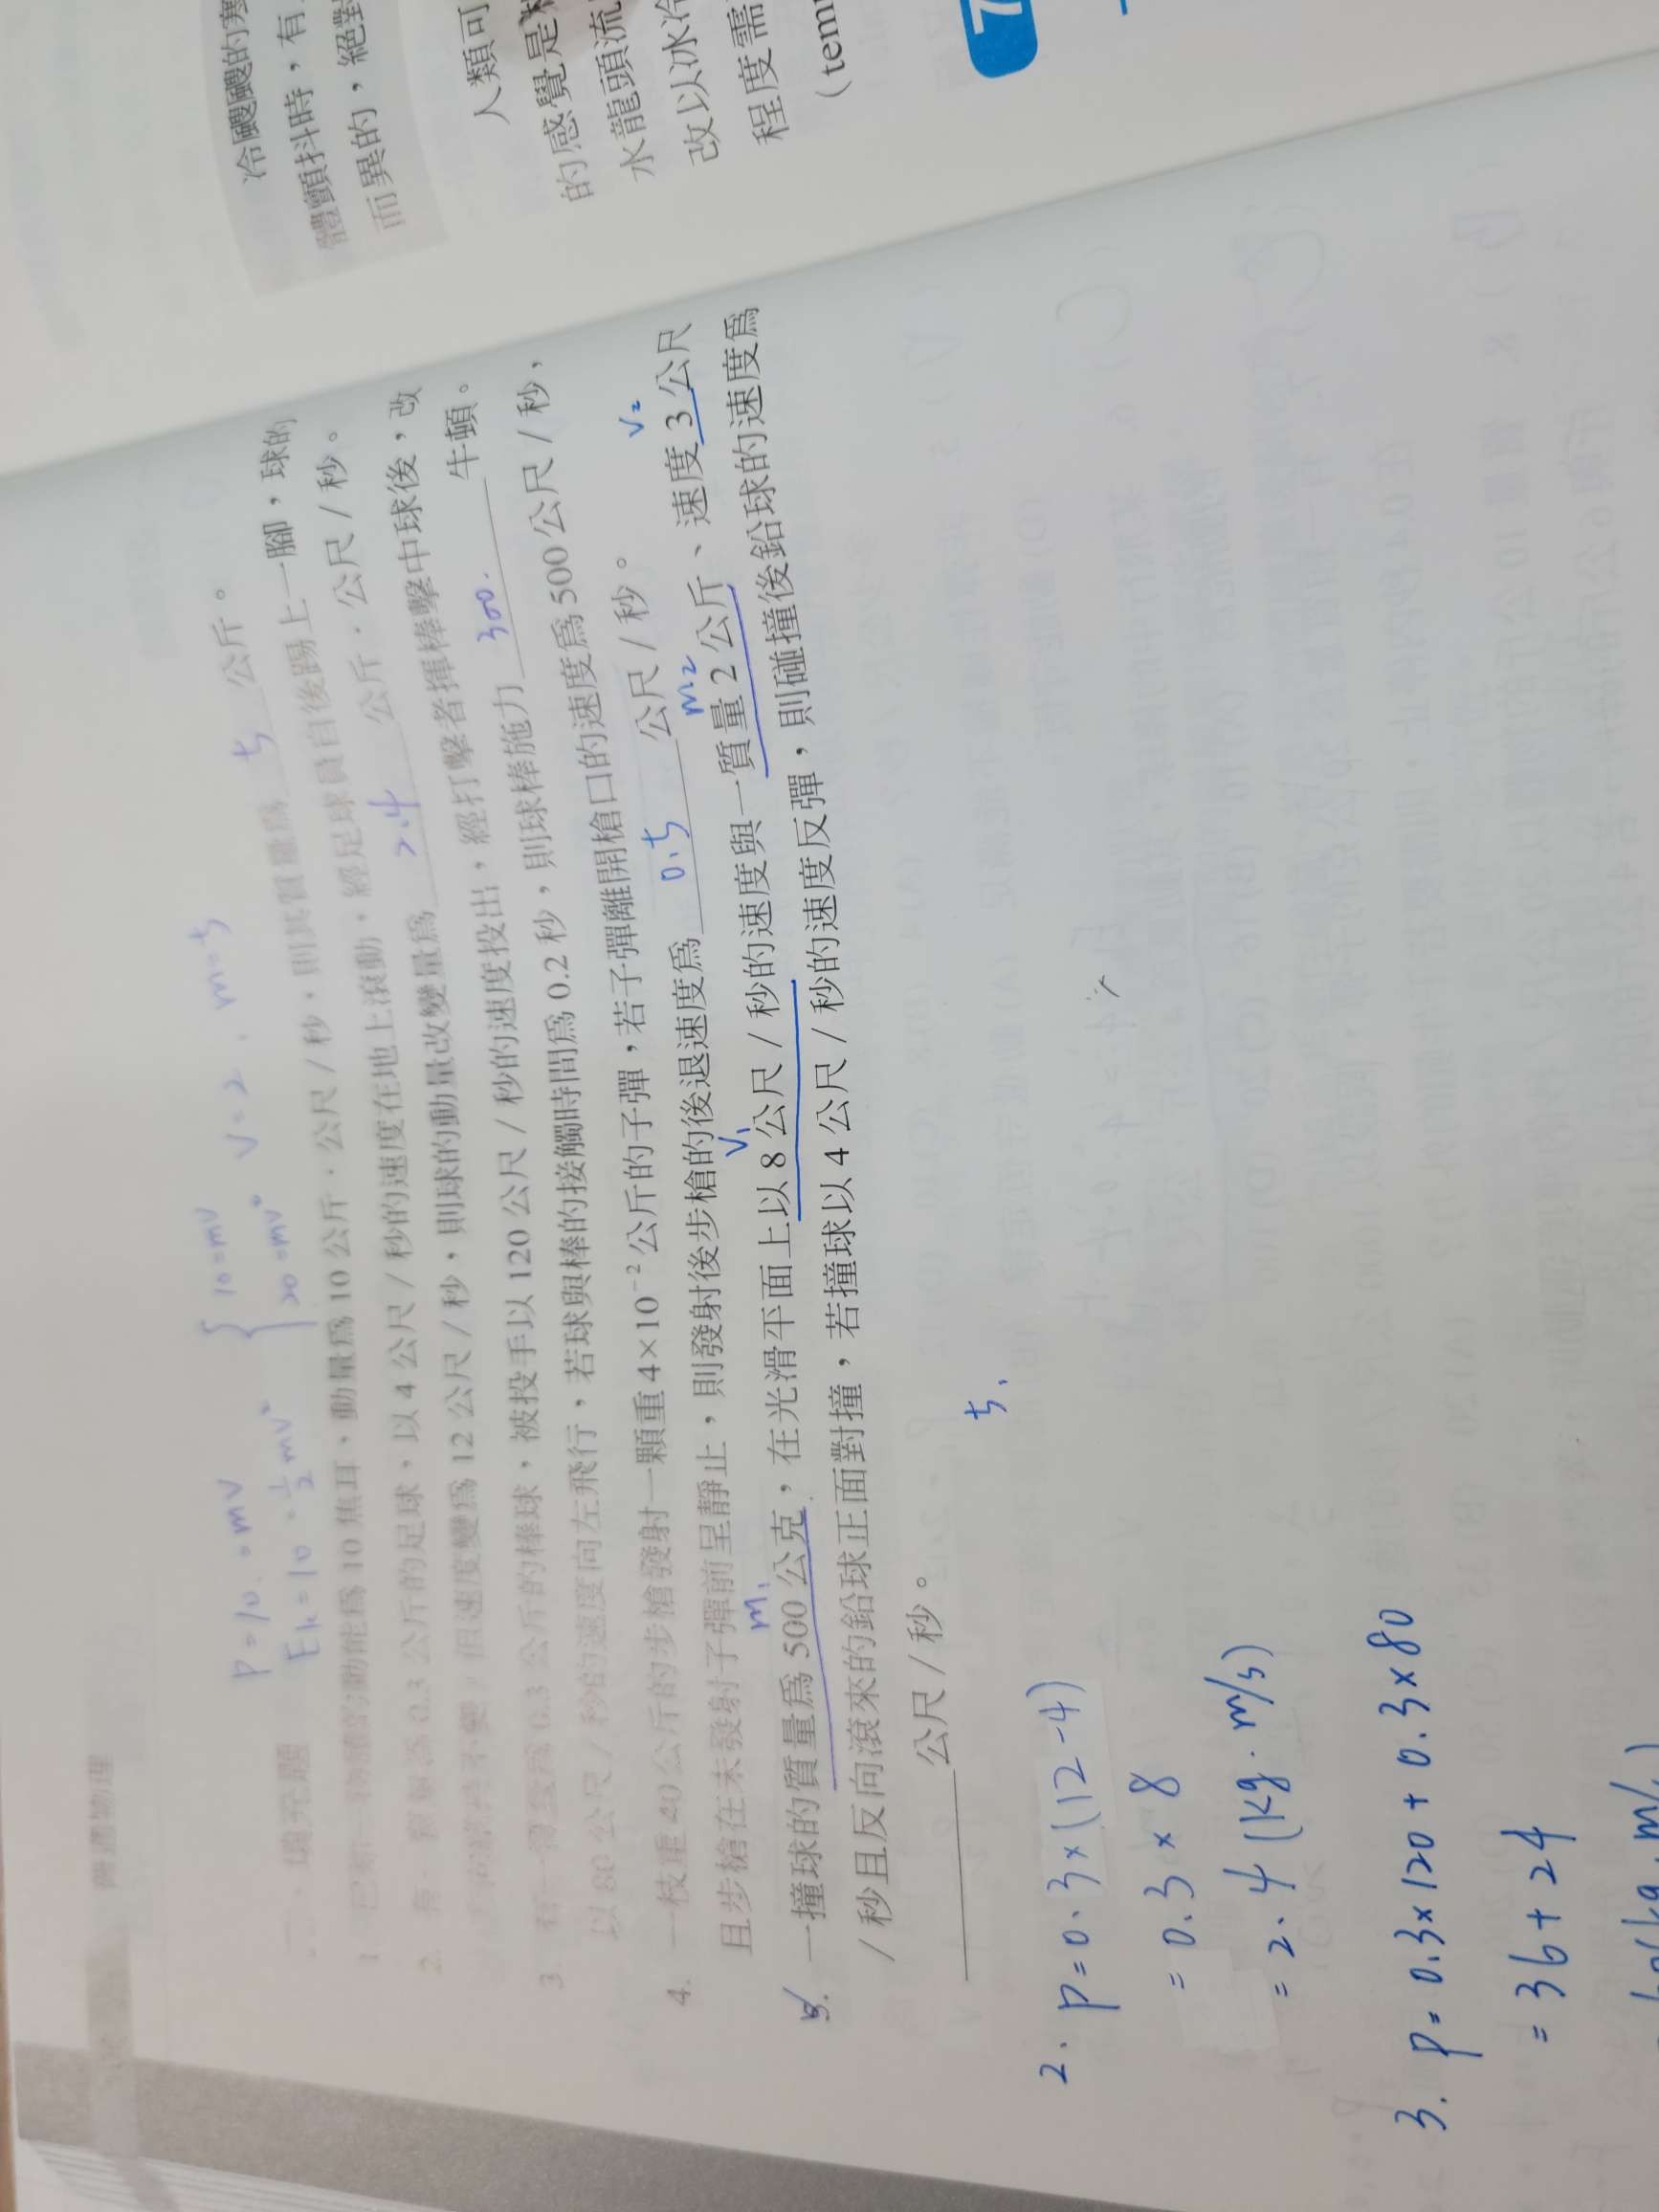 普通物理
一、填充題
P=10=mv
Ek=10=½mv²
{10=mv
20=mv²
v=2, m=5
1. 已知一物體的動能為 10 焦耳,動量為 10 公斤.公尺/秒,則其質量為 5 公斤。
2. 有一質量為 0.3 公斤的足球,以 4 公尺/秒的速度在地上滾動,經足球員自後踢上一腳,球的
方向維持不變,但速度變為 12 公尺/秒,則球的動量改變量為 2.4 公斤.公尺/秒。
3. 有一個質量為 0.3 公斤的棒球,被投手以 120 公尺/秒的速度投出,經打擊者揮棒擊中球後,改
以 80 公尺/秒的速度向左飛行,若球與棒的接觸時間為 0.2 秒,則球棒施力 300. 牛頓。
4. 一枝重 40 公斤的步槍發射一顆重 4×10⁻² 公斤的子彈,若子彈離開槍口的速度為 500 公尺/秒,
且步槍在未發射子彈前呈靜止,則發射後步槍的後退速度為 0.5 公尺/秒。
m₁ v₁ m₂ v₂
5. 一撞球的質量為 500 公克,在光滑平面上以 8 公尺/秒的速度與一質量 2 公斤、速度 3 公尺
/秒且反向滾來的鉛球正面對撞,若撞球以 4 公尺/秒的速度反彈,則碰撞後鉛球的速度為
公尺/秒。
2. P=0.3×(12-4)
=0.3×8
=2.4(kg.m/s)
5.
3. P=0.3×120+0.3×80
=36+24
冷颼颼的寒
體顫抖時,有
而異的,絕對
人類可
的感覺是
水龍頭流
改以冰冷
程度需
(tem
7